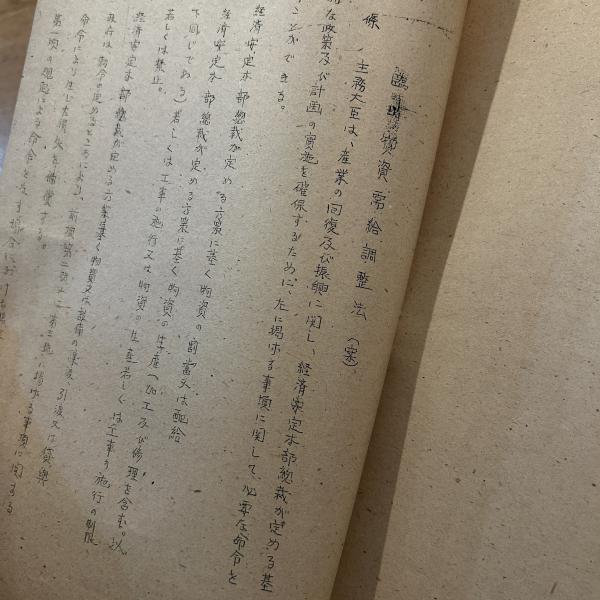 臨時物資需給調整法（案）
條 主務大臣は、産業の回復及び振興に関し、経済安定本部総裁が定める基
な政策及び計画の実施を確保するために、左に掲げる事項に関して、必要な命令を
ことができる。
経済安定本部総裁が定める方策に基く物資の割当又は配給
経済安定本部総裁が定める方策に基く物資の生産（加工及び修理を含む。以
下同じである）若しくは工事の施行又は物資の生産若しくは工事の施行の制限
若しくは禁止。
経済安定本部総裁が定める方策に基く物資又は設備の譲渡、引渡又は貸与
政府は、勅令の定めるところにより、前項第二号 第三号 掲げる事項に関する
命令により生じた損失を補償する。
第一項の規定による命令を